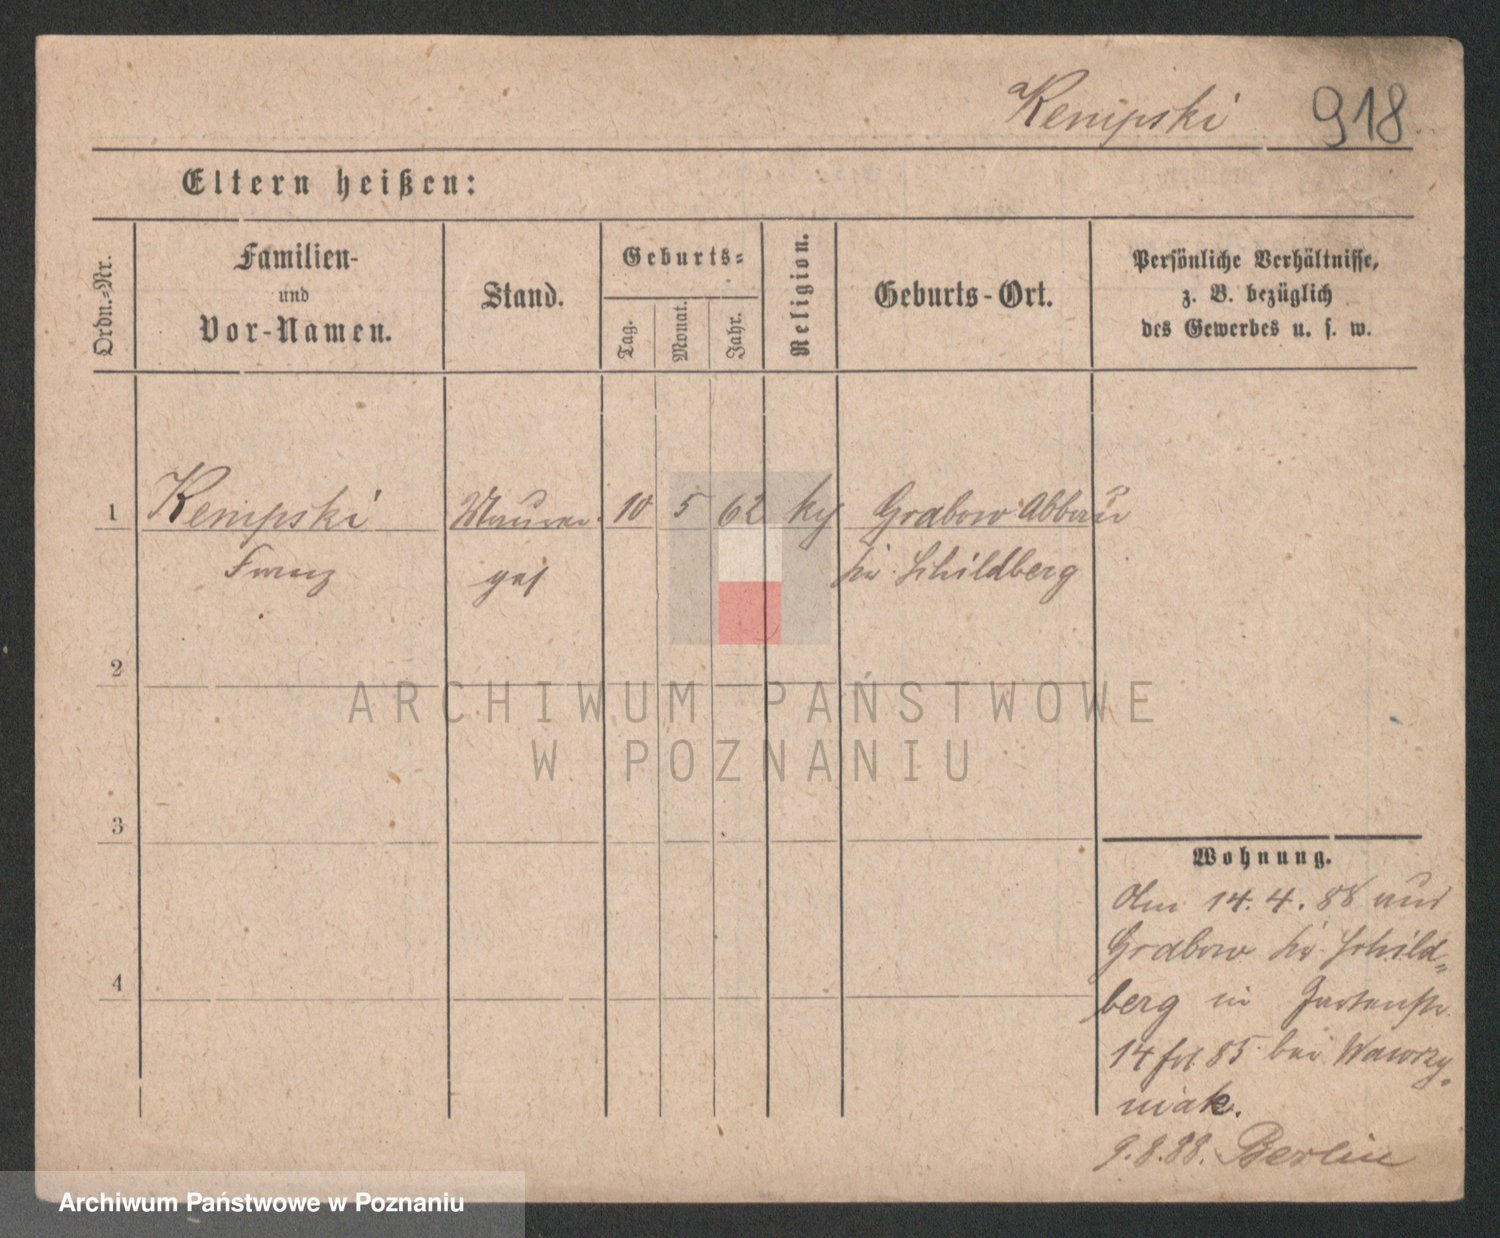 Kempski 918.
Eltern heißen:
Ordn.-Nr.
Familien-
und
Vor-Namen.
Stand.
Geburts-
Tag.
Monat.
Jahr.
Religion.
Geburts-Ort.
Persönliche Verhältnisse,
z. B. bezüglich
des Gewerbes u. s. w.
1 Kempski Maurer 10 5 62 kg Grabow Abbau
Franz ges Kr. Schildberg
2
3
4
Wohnung.
Am 14. 4. 88 aus
Grabow Kr. Schild-
berg in Gartenstr.
14 fol. 85 bei Wawrzy-
niak.
9.8.88. Berlin
ARCHIWUM PAŃSTWOWE
W POZNANIU
Archiwum Państwowe w Poznaniu